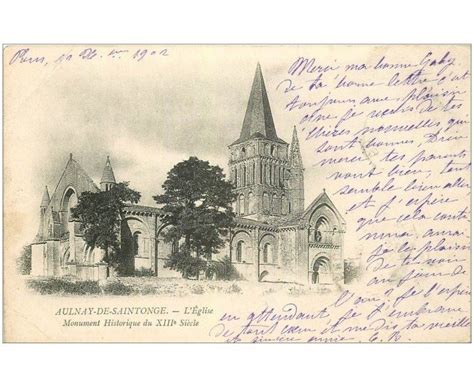 Paris, 10 Xbre 1902
Merci ma bonne Gaby
de ta bonne lettre c'est
toujours avec plaisir
que je reçois de tes
chères nouvelles qui
sont bonnes, Dieu
merci tes parents
vont bien, ton
semble bien aller
et j'espère
que cela conti
nuera, aurai
je le plaisir
de te voir
au jour de
l'an je l'espère
en attendant je t'embrasse
de tout cœur et me dis ta meilleure
et sincère amie. E. R.
AULNAY-DE-SAINTONGE. — L'Église
Monument Historique du XIIIe Siècle